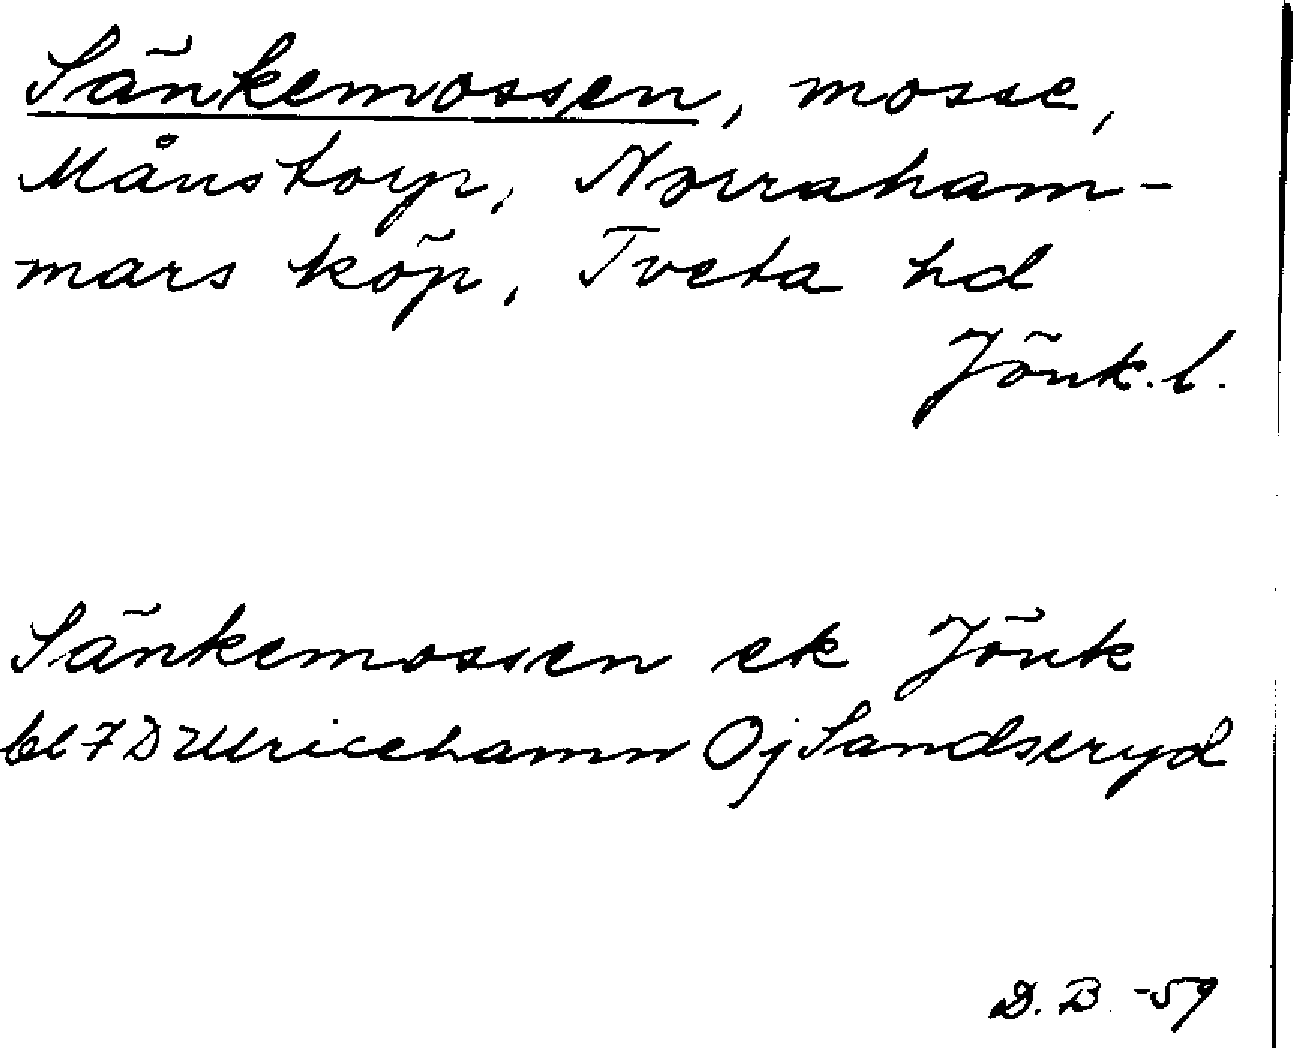 Sänkemossen, mosse,
Månstorp, Norraham-
mars köp, Tveta hd
Jönk. l.
Sänkemossen ek Jönk
bl 7D Ulricehamn Oj Sandseryd
D. B. -59